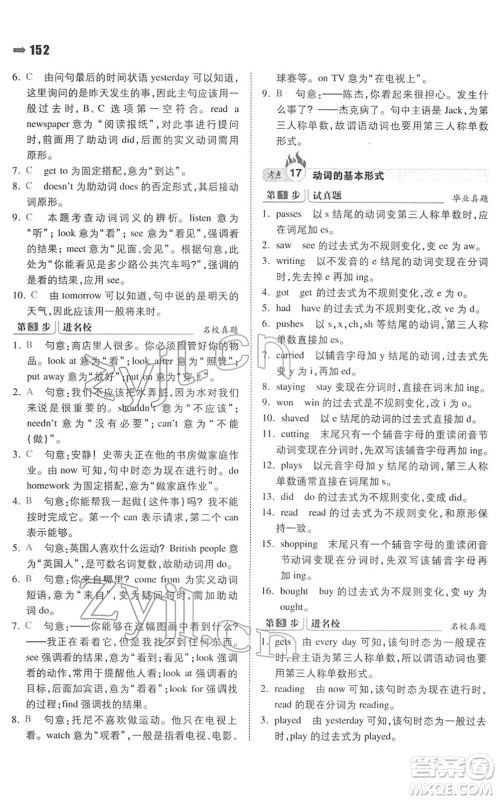 152
6. C 由问句最后的时间状语 yesterday 可以知道,
这里询问的是昨天发生的事,主句应该用一
般过去时,B、C 选项第一空符合。read a
newspaper 意为“阅读报纸”,对这个动词进
行提问时,前面用了助动词 did,后面要用动词
原形。
7. C go to 为固定搭配,意为“去某地”。
8. C doesn't 为助动词的否定形式,其后接动
词原形。
9. C 本题考查动词词义的辨析。listen 意为
“听”;look 意为“看”;see 意为“看见”,强调
看的结果;meet 意为“见面/会见”。根据句意,
你能从地图看见是多少路公共汽车吗?强调看
的结果,应用 see。
10. C 由 tomorrow 可以知道,句中说的是明天的
天气,所以用一般将来时。
第3步 进名校 名校真题
1. B 句意:商店里人很多。你必须照管好你的
包! look at 意为“看”;look after 意为“照管”;
put away 意为“放好”;put on 意为“穿上”。
2. A 句意:我们不应该把水弄脏。我们不能没
有水而生活。shouldn't 意为“不应该”;
needn't 意为“不需要”;can't 意为“不能
(做)”。
3. C 句意:安静!史蒂夫正在他的书房做家庭作
业。look 引导的句子,句中时态为现在进行时。do
homework 意为“做家庭作业”。
4. B 句意:——我们能一起做{这件事}吗?
——我想我们能。我们可以叫简帮忙并且我们能
按时完成它。第一个 can 表示请求,第二个 can
表示能力。
5. A 句意:英国人喜欢什么运动? British people 意
为“英国人”,是复数形式,故助动词用 do。
6. B 句意:你来自哪里? come from 为实意动词
词组,变特殊疑问句时要借用助动词 do。
7. B 句意:——你能在这幅图画中看到什么?
——我只能看到一些花。look 和 look at 强调看
的动作,look for 强调找的动作,look at 和 look for
后面加宾语,意为“看;寻找”,强调动作;see
和 find 强调结果。
8. B 句意:托尼不喜欢做运动。他只在电视上观
看。watch 意为“观看”,一般指看电视、电影、
球赛等。on TV 意为“在电视上”。
9. B 句意:——陈杰,你看起来很担心。发生什
么事了?——杰克病了。句中主语是 Jack,为第
三人称单数,所以谓语动词也要用第三人称单数
形式。
考点 17 动词的基本形式
第1步 试真题 毕业真题
1. passes 以 s 结尾的动词变第三人称单数时,直接
加 es。
2. saw see 的过去式为不规则变化,变 ee 为 aw。
3. writing write 变现在分词时,以不发音的字母 e
结尾,去掉 e 再加 ing。
4. got get 的过去式为不规则变化,改 e 为 o。
5. pushes 以 s,x,ch,sh 等结尾的动词,变第三人
称单数时直接加 es。
6. carried 以辅音字母加 y 结尾的动词,过去式先变
y 为 i,再加 ed。
7. staying stay 变现在分词时,直接加 ing。
8. won win 的过去式为不规则变化,改 i 为 o。
9. shaved shave 以 e 结尾的动词,过去式直接加 d。
10. cutting 末尾只有一个辅音字母的重读闭音节
动词变现在分词时,先双写这个辅音字母,再
加 ing。
11. plays 以元音字母加 y 结尾的动词变第三人称
单数时直接加 s。
12. did do 的过去式为不规则变化。
13. read read 的过去式与原形相同。
14. shopping 末尾只有一个辅音字母的重读闭音节
动词变现在分词时,先双写这个辅音字母,再
加 ing。
15. bought buy 的过去式为不规则变化,变 uy 为
ought。
第3步 进名校 名校真题
1. gets 由 every day 可知,该句时态为一般现在
时,且主语为第三人称单数,所以谓语动词也要用
第三人称单数形式。
2. reading 由 now 可知,该句时态为现在进行时。
3. played 由 yesterday 可知,该句时态为一般过
去时。